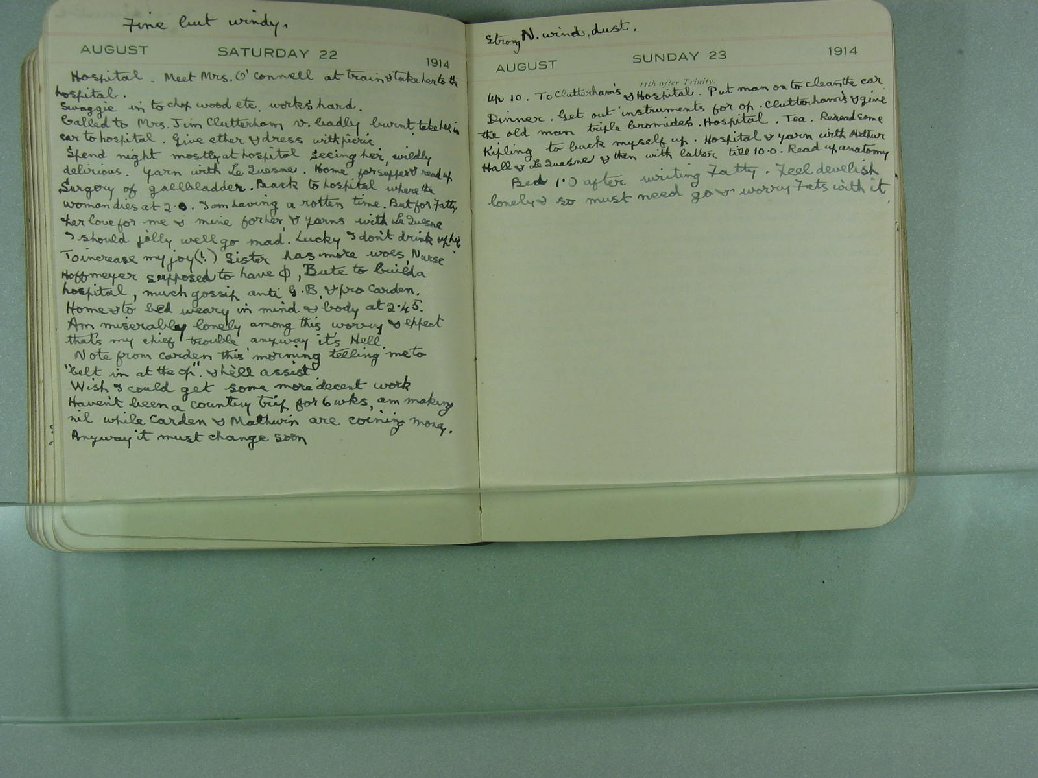 Fine but windy.
AUGUST SATURDAY 22 1914
Hospital. Meet Mrs. O'Connell at train & take her to th
hospital.
Swaggie in, to chop wood etc. works hard.
Called to Mrs. Jim Clutterham v. badly burnt, take her in
car to hospital. Give ether & dress with picric
Spend night mostly at hospital seeing her, wildly
delirious. Yarn with Le Quesne. Home for support read up
Surgery of gallbladder. Back to hospital where the
woman dies at 2.0. I am having a rotten time. But for Fatty
& her love for me & mine for her, & yarns with Le Quesne
I should jolly well go mad. Lucky I don't drink
To increase my joy (!) Sister has more woes, Nurse
Hoffmeyer supposed to have φ, Bute to build a
hospital, much gossip anti G.B. & pro Carden.
Home & to bed weary in mind & body at 2.45.
Am miserably lonely among this worry & expect
that's my chief trouble anyway it's Hell
Note from Carden this morning telling me to
"belt in at the op". & he'll assist
Wish I could get some more decent work
Haven't been a country trip for 6 wks, am making
nil while Carden & Mathwin are coining money.
Anyway it must change soon
Strong N. wind, dust.
AUGUST SUNDAY 23 1914
11th after Trinity.
Up 10. To Clutterham's & Hospital. Put man on to clean the car
Dinner. Get out instruments for op. Clutterham's & give
the old man triple bromides. Hospital. Tea. Read some
Kipling to buck myself up. Hospital & yarn with Arthur
Hall & Le Quesne & then with latter till 10.0. Read up anatomy
Bed 1.0 after writing Fatty. Feel develish
lonely & so must need go & worry Fats with it